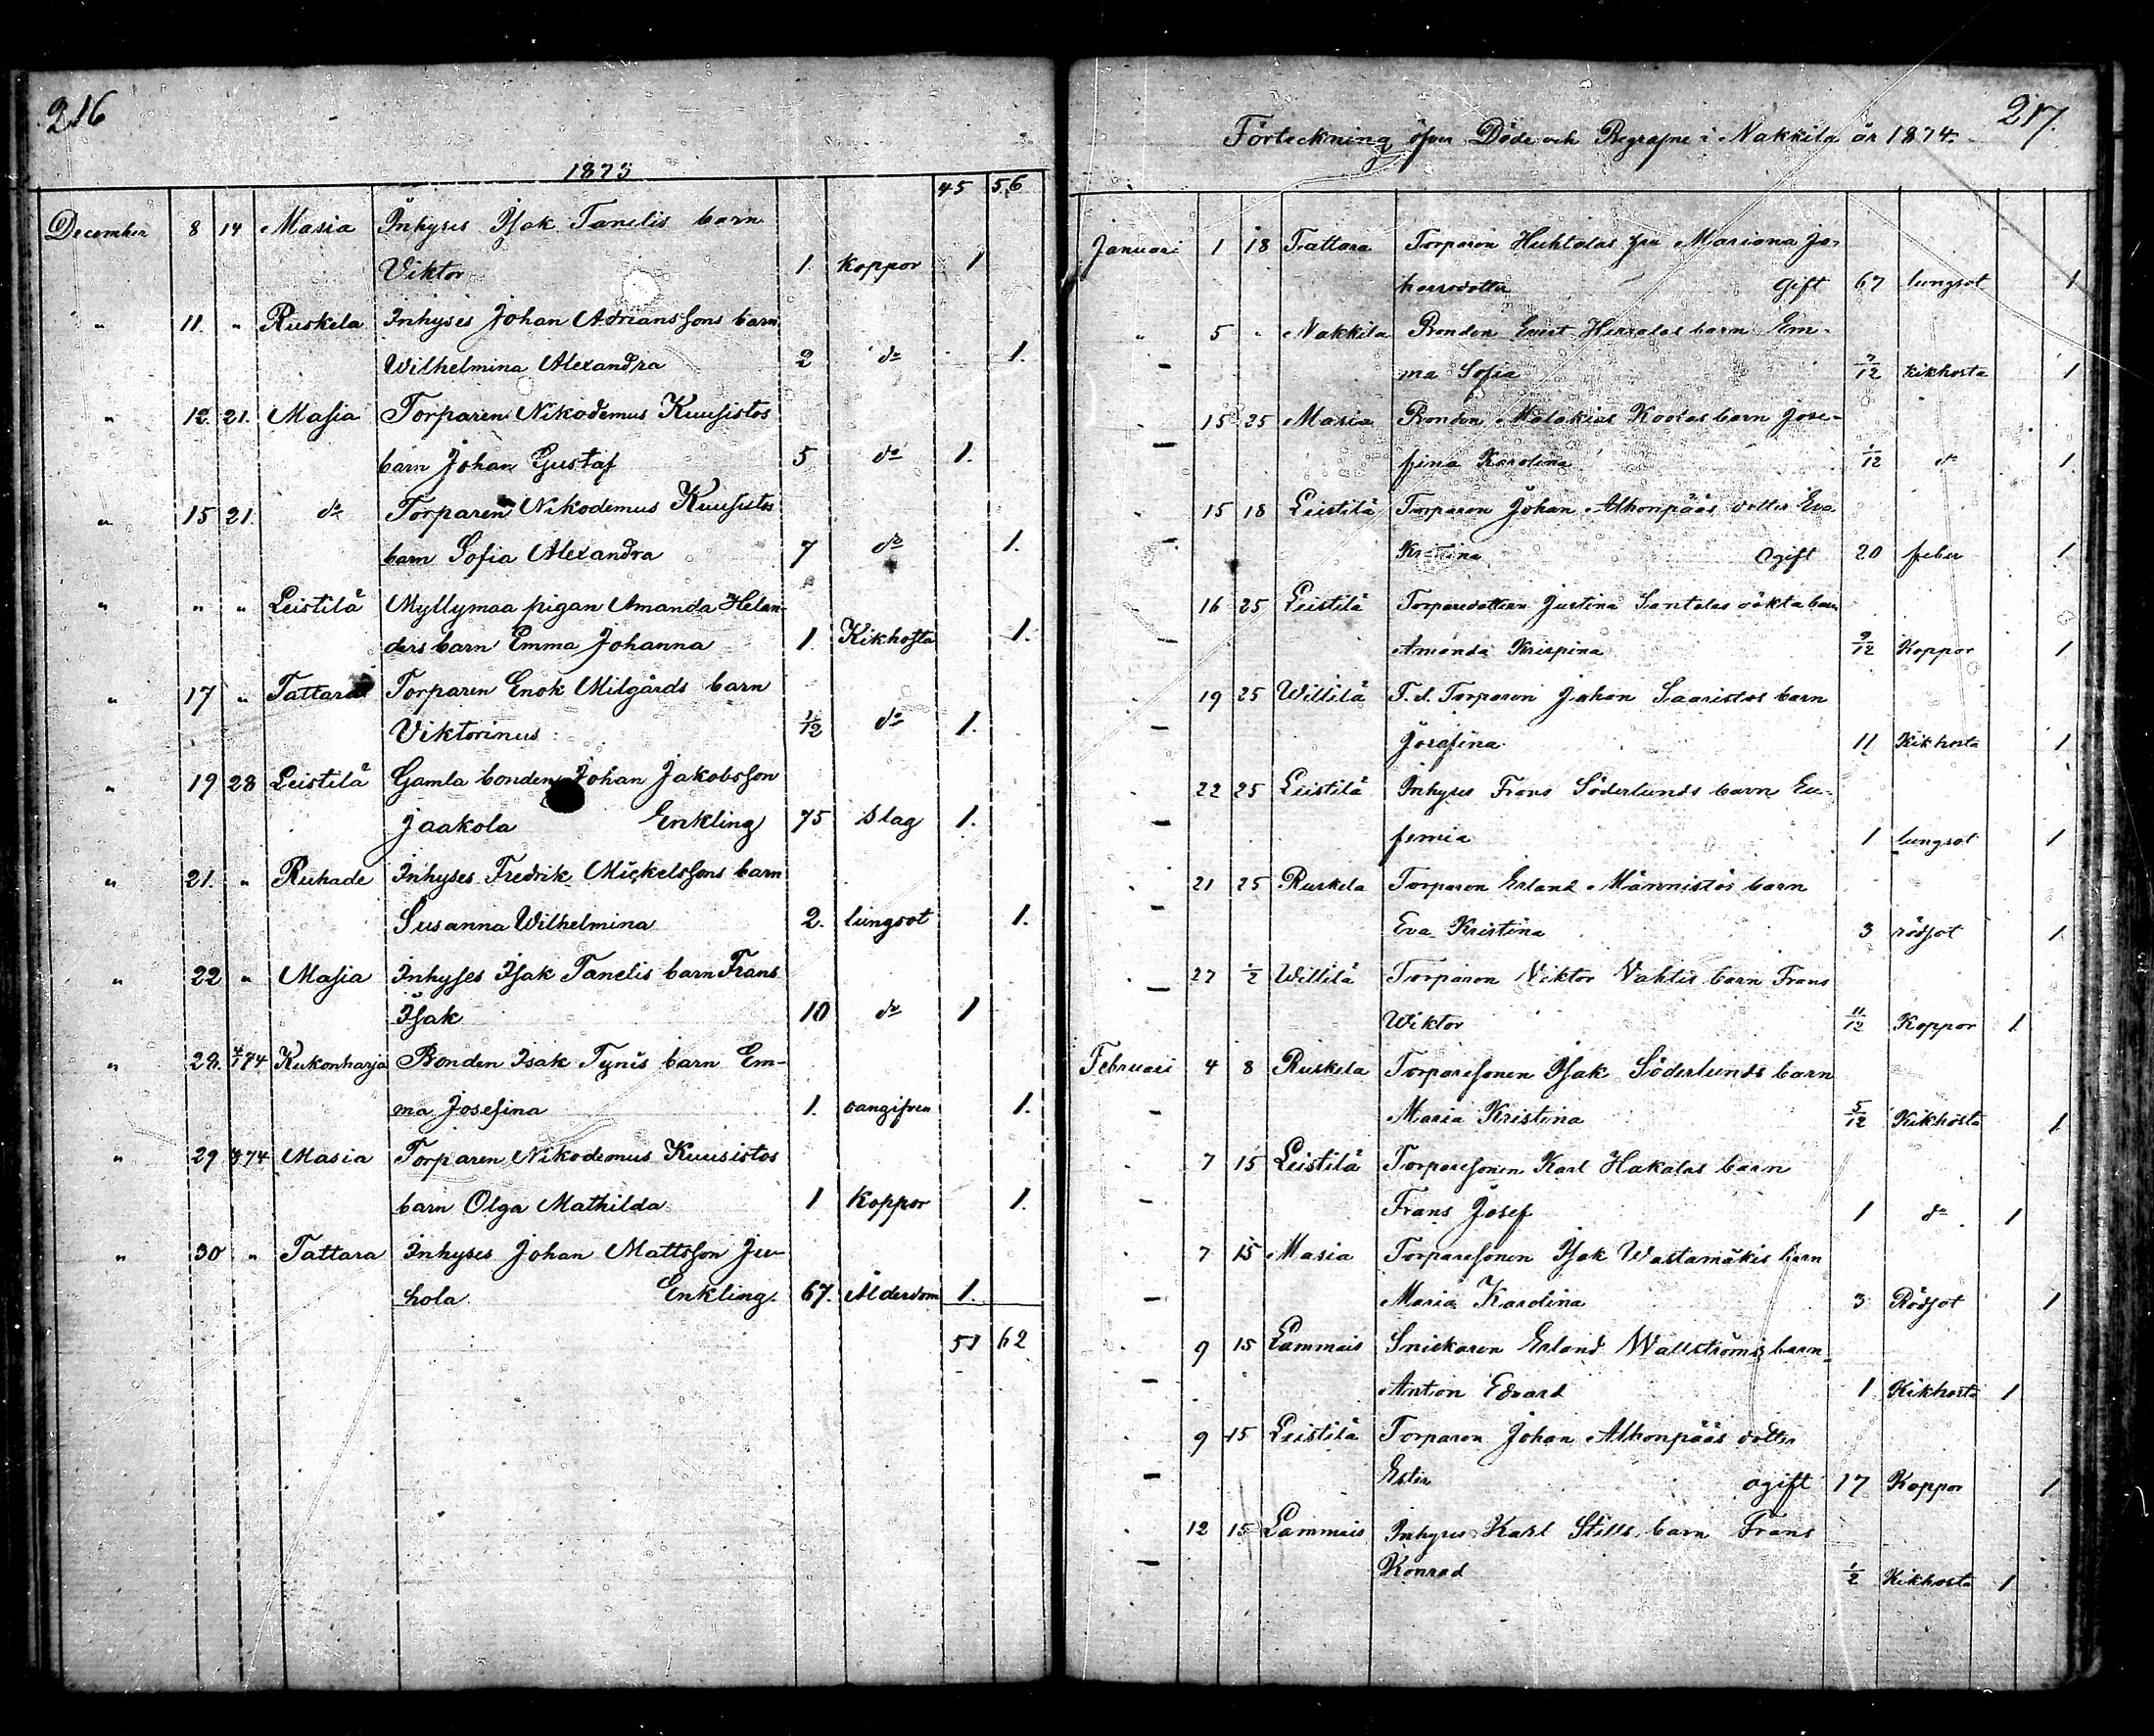 216
1873
45 56
December 8 14 Masia Inhyses Isak Tanelis barn
Viktor 1. koppor 1
" 11. " Ruskela Inhyses Johan Adrianssons barn
Wilhelmina Alexandra 2 do 1.
" 12. 21. Masia Torparen Nikodemus Kuusistos
barn Johan Gustaf 5 do 1.
" 15 21. do Torparen Nikodemus Kuusistos
barn Sofia Alexandra 7 do 1.
" " " Leistilä Myllymaa pigan Amanda Helan-
ders barn Emma Johanna 1. Kikhosta 1.
" 17 " Tattara Torparen Enok Milgårds barn
Viktorinus 1/12 do 1.
" 19 28 Leistilä Gamla bonden Johan Jakobsson
Jaakola Enkling 75 Slag 1.
" 21. " Ruhade Inhyses Fredrik Mickelssons barn
Susanna Wilhelmina 2. lungsot 1.
" 22 " Masia Inhyses Isak Tanelis barn Frans
Isak 10 do 1
" 28. 4/1 74 Kukonharja Bonden Isak Tynis barn Em-
ma Josefina 1. oangifven 1.
" 29 74 Masia Torparen Nikodemus Kuusistos
barn Olga Mathilda 1 Koppor 1.
" 30 " Tattara Inhyses Johan Mattsson Ju-
hola. Enkling. 67. Ålderdom 1.
51 62
217.
Förteckning öfver Döde och Begrafne i Nakkila år 1874.
Januari 1 18 Tattara Torparen Huhtalas fru Mariana Jo-
hansdotter Gift 67 lungsot 1
" 5 " Nakkila Bonden barn Em-
ma Sofia 7/12 Kikhosta 1
15 25 Masia Bonden Malakias barn Jose-
fina Karolina 1/12 do 1.
15 18 Leistilä Torparen Johan Alhonpääs dotter Eva
Kristina Ogift 20 feber 1
16 25 Leistilä Torparedottern Justina Santalas oäkta barn
Amanda Krispina 9/12 Koppor 1
19 25 Willilä F. d. Torparen Johan Saaristos barn
Josefina 11 Kikhosta 1
22 25 Leistilä Inhyses Frans Söderlunds barn Eu-
femia 1 lungsot 1
21 25 Ruskela Torparen Erland Männistös barn
Eva Kristina 3 rödsot 1
27 1/2 Willilä Torparen Viktor Vahtis barn Frans
Wiktor 11/12 Koppor 1
Februari 4 8 Ruskela Torparesonen Isak Söderlunds barn
Maria Kristina 5/12 Kikhosta 1
7 15 Leistilä Torparesonen Karl Hakalas barn
Frans Josef 1 do 1
7 15 Masia Torparesonen Isak Wastamäkis barn
Maria Karolina 3 Rödsot 1
9 15 Lammais Snickaren Erland Wallströms barn
Anton Edvard 1 Kikhosta 1
9 15 Leistilä Torparen Johan Alhonpääs dotter
Ester ogift 17 Koppor 1
12 15 Lammais Inhyses Karl Stills barn Frans
Konrad 1/2 Kikhosta 1